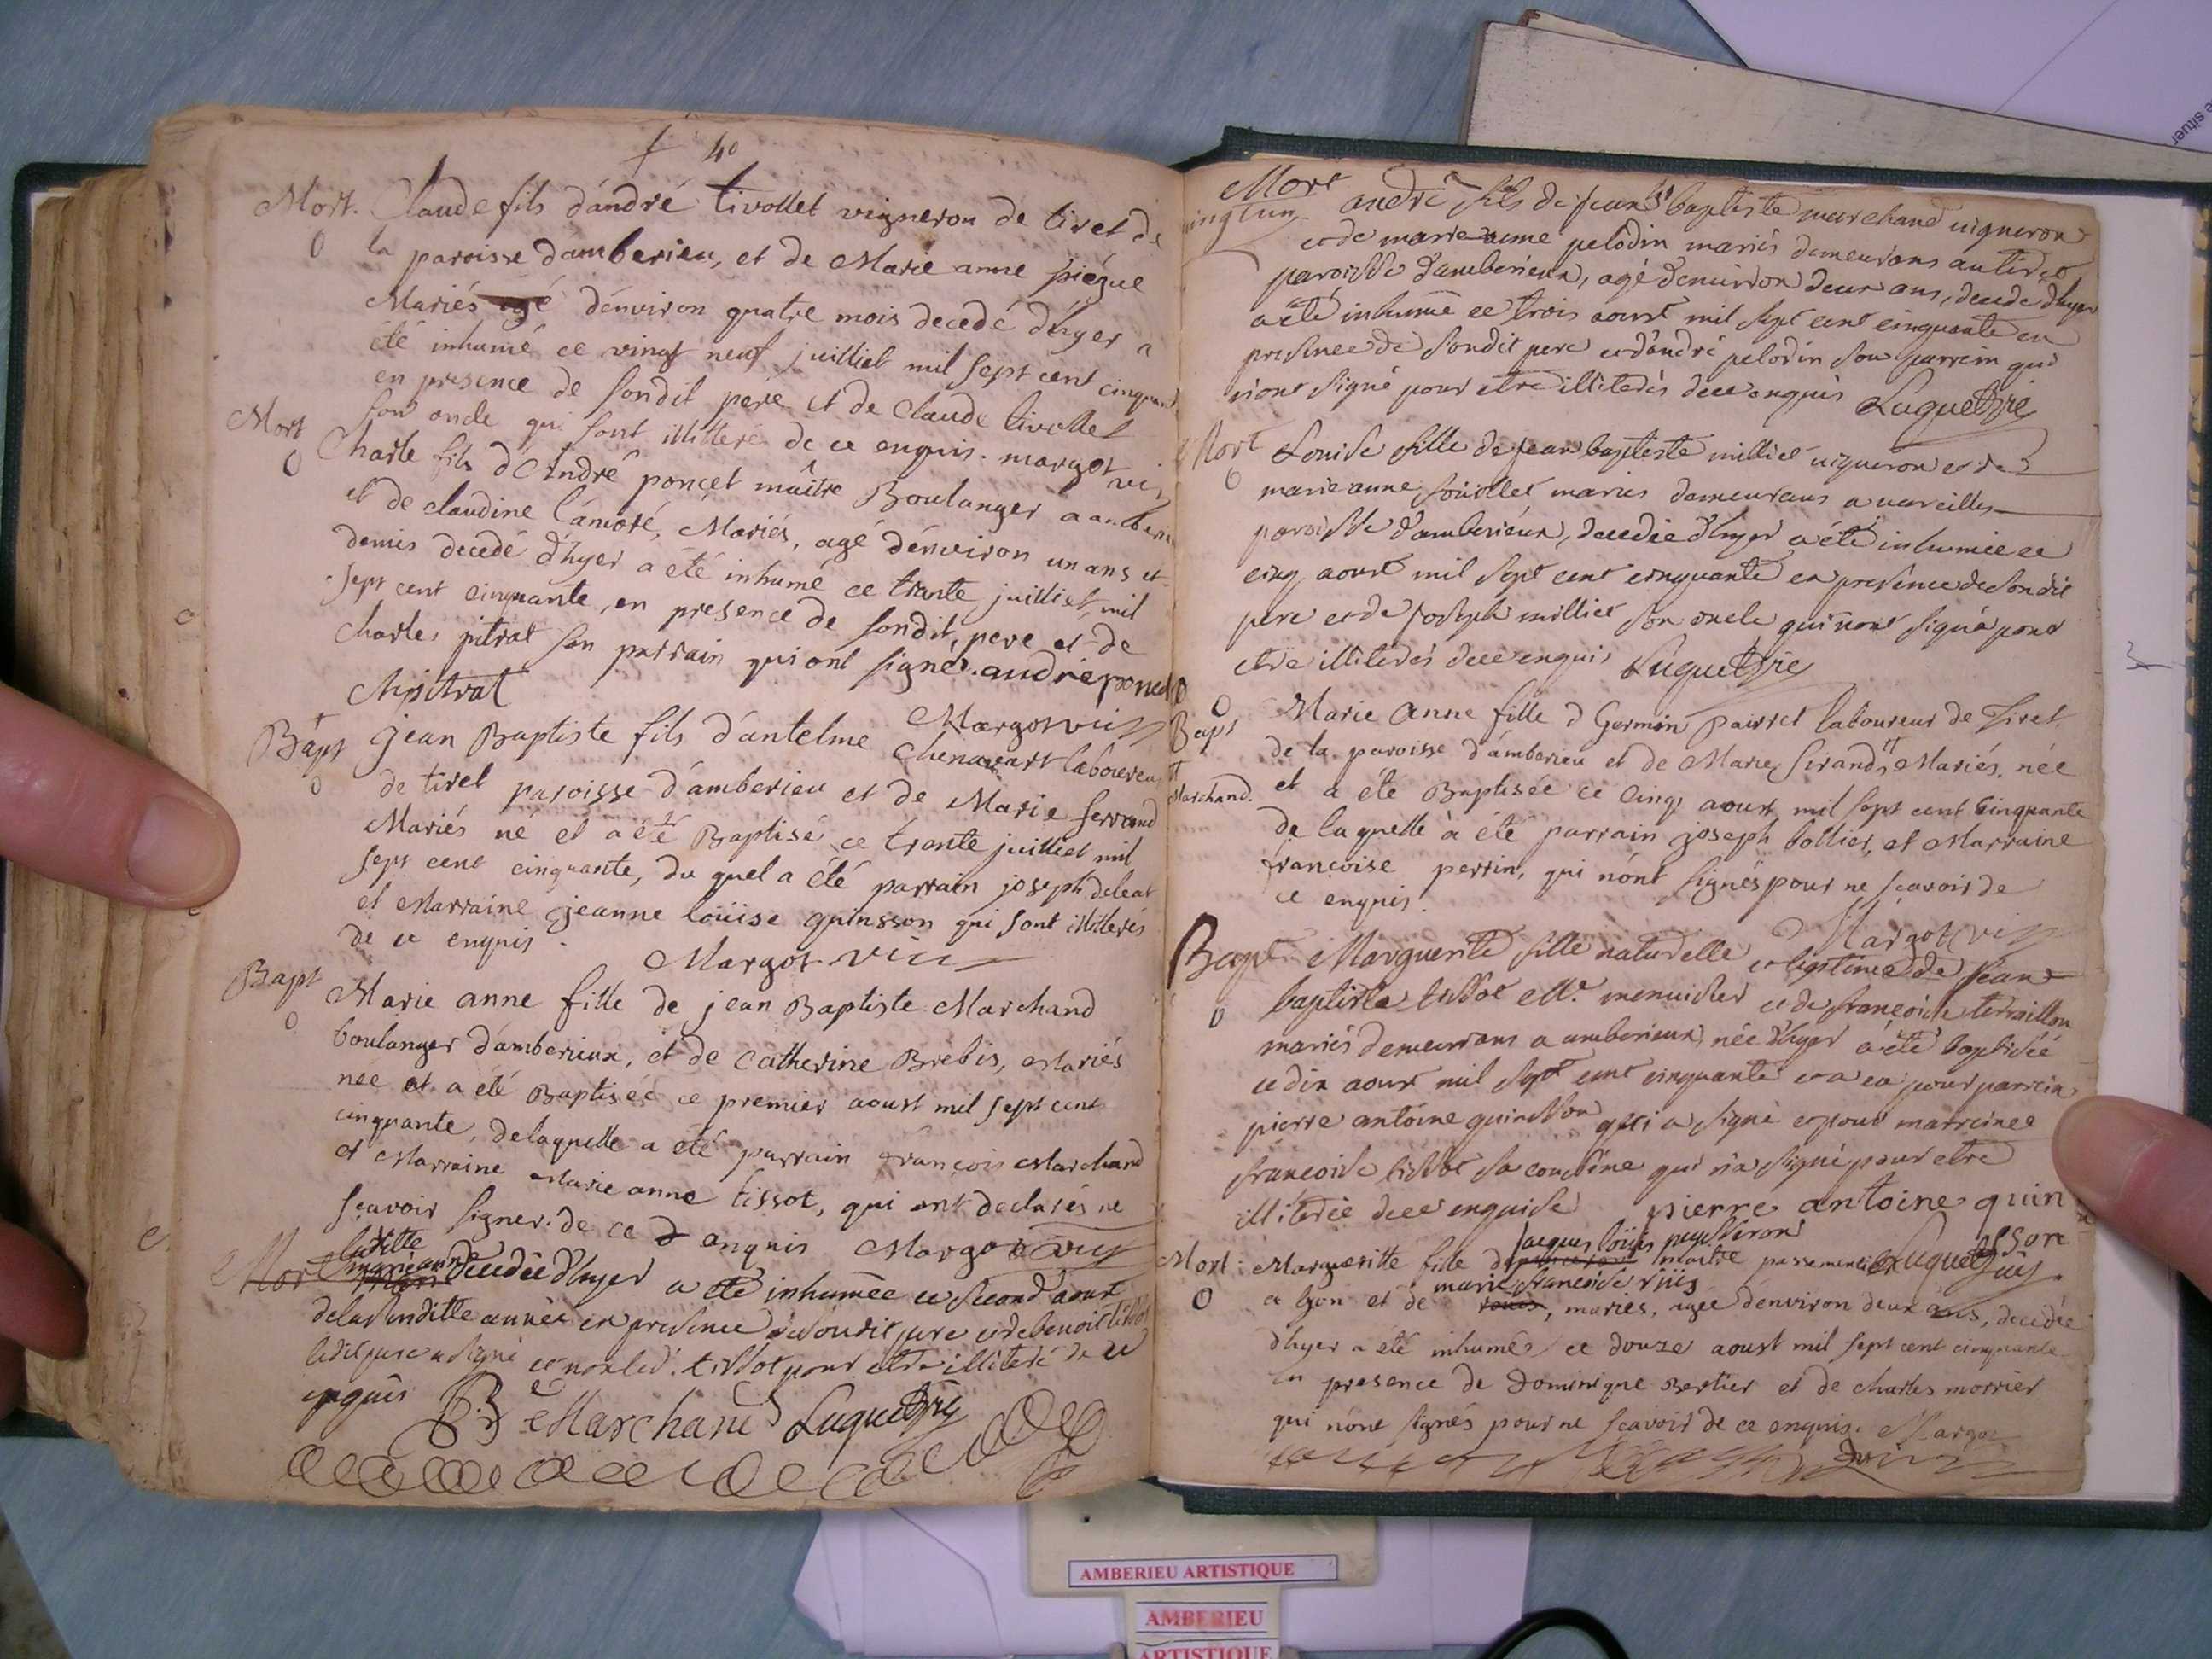 40
Mort. Claude fils d'andré tivollet vigneron de tiret de
la paroisse d'amberieu, et de Marie anne piégue
Mariés agé d'énviron quatre mois decedé d'hyer a
été inhumé ce vingt neuf juilliet mil sept cent cinquante
en presence de sondit pére et de Claude tivollet
son oncle qui sont illitteré de ce enquis. margot vic
Mort Charle fils d'André poncet maître Boulanger a amberieu
et de claudine l'ámoré, Mariés, agé d'énviron un ans et
demis decedé d'hyer a été inhumé ce trante juilliet mil
sept cent cinquante, en presence de sondit pere et de
Charles pitrat son parrain qui ont signés. andré poncet
Chpitrat
Margot vic
Bapt Jean Baptiste fils d'antelme Chenavart laboureur
de tiret paroisse d'amberieu et de Marie ferrand
Mariés né et a été Baptisé ce trante juilliet mil
sept cent cinquante, du quel a été parrain joseph deleat
et Marraine jeanne loüise quinsson qui sont illitterés
de ce enquis.
Margot vic
Bapt Marie anne fille de jean Baptiste Marchand
boulanger d'amberieux, et de Catherine Brebis, Mariés
née et a été Baptiseé ce premier aoust mil sept cent
cinquante, de laquelle a été parrain françois Marchand
et Marraine Marie anne tissot, qui ont declarés ne
sçavoir signer. de ce enquis Margot vic
Mort laditte marie anne decedeé d'hyer a été inhumeé ce second aoust
de la susditte anneé en presence de sondit pere et de benoit tissot
ledit pere a signé et non led. tissot pour etre illiteré de ce
enquis B Marchand Luquet
Mort andré fils de jean baptiste marchand vigneron
et de marie aimé pelodin mariés demeurans au tiret
paroisse d'amberieux, agé d'environ deux ans, decedé d'hyer
a été inhumé ce trois aoust mil sept cent cinquante en
presence de sondit pere et d'andré pelodin son parrein qui
n'ont signé pour etre illiterés de ce enquis Luquet
Mort Louise fille de jean baptiste milliet vigneron et de
marie anne mariés demeurans a vareilles
paroisse d'amberieux, decedeé d'hyer a été inhumeé ce
cinq aoust mil sept cent cinquante en presence de sondit
pere et de joseph milliet son oncle qui n'ont signé pour
etre illiterés de ce enquis Luquet
Bapt Marie Anne fille d Germin pairret laboureur de Tiret
Marchand. de la paroisse d'ámberieu et de Marie Sirand, Mariés, née
et a été Baptisée ce cinq aoust mil sept cent cinquante
de laquelle à été parrain joseph bollier, et Marraine
françoise perrin, qui n'ónt signés pour ne scavoir de
ce enquis.
Margot vic
Bapt Marguerite fille naturelle et legitime de jean
baptiste tissot M.e menuisier et de françoise terraillon
mariés demeurans a amberieux, née d'hyer a été baptiseé
ce dix aoust mil sept cent cinquante et a eu pour parrein
pierre antoine quinsson qui a signé et pour marreinee
francoise tissot sa cousine qui n'a signé pour etre
illitereé de ce enquise pierre antoine quin
sson
Luquet
Mort: Margueritte fille de jacques loüis maitre passementier
a lyon et de marie francoise rüis, mariés, agée d'énviron deux ans, decedée
d'hyer a été inhumés ce douze aoust mil sept cent cinquante
en presence de Dominique Bertier et de charles morrier
qui n'ónt signés pour ne scavoir de ce enquis. Margot
vic
AMBERIEU ARTISTIQUE
AMBERIEU
ARTISTIQUE
e situer